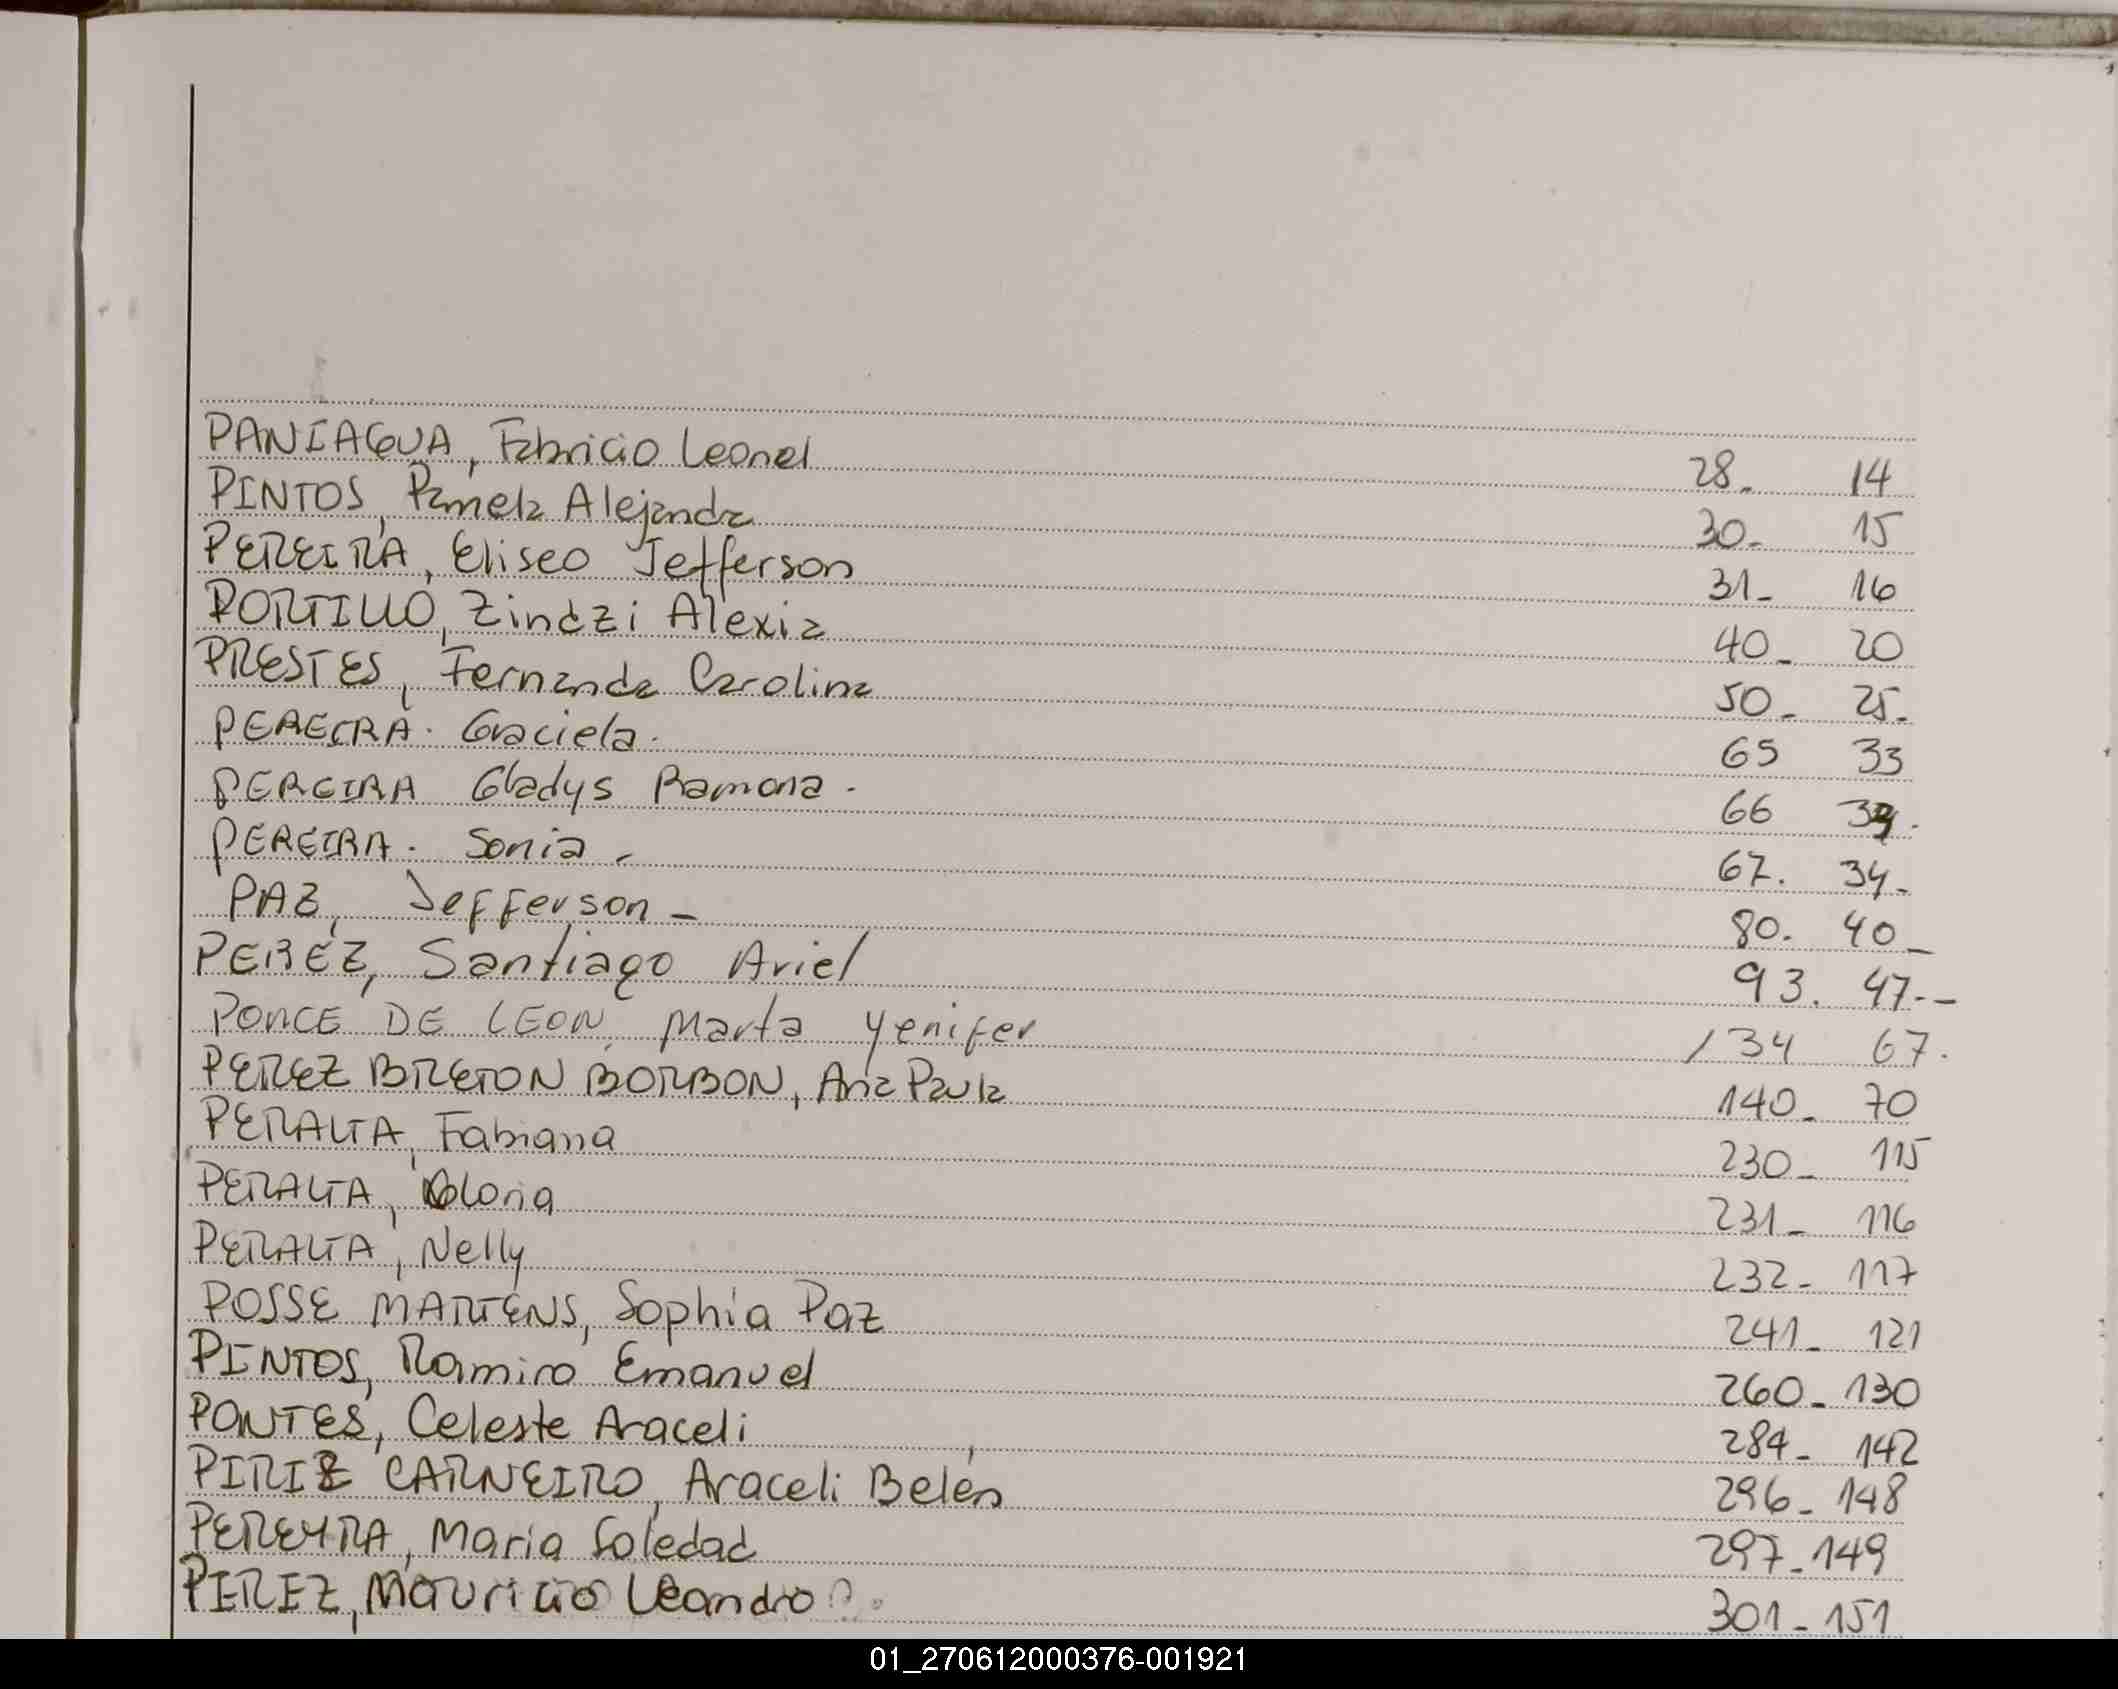 PANIAGUA, Fabricio Leonel 28_ 14
PINTOS, Pamela Alejandra 30_ 15
PEREIRA, Eliseo Jefferson 31_ 16
PORTILLO, Zindzi Alexia 40_ 20
PRESTES, Fernanda Carolina 50_ 25_
PEREIRA. Graciela. 65 33
PEREIRA Gladys Ramona. 66 33.
PEREIRA. Sonia. 67. 34_
PAZ, Jefferson_ 80. 40_
PEREZ, Santiago Ariel 93. 47.-_
PONCE DE LEON, Marta Yenifer 134 67.
PEREZ BRETON BORBON, Ana Paula 140_ 70
PERALTA, Fabiana 230_ 115
PERALTA, Gloria 231_ 116
PERALTA, Nelly 232_ 117
POSSE MARTENS, Sophia Paz 241_ 121
PINTOS, Ramiro Emanuel 260_ 130
PONTES, Celeste Araceli 284_ 142
PIRIZ CARNEIRO, Araceli Belén 296_ 148
PEREYRA, Maria Soledad 297_ 149
PEREZ, Mauricio Leandro 301_ 151
01_270612000376-001921